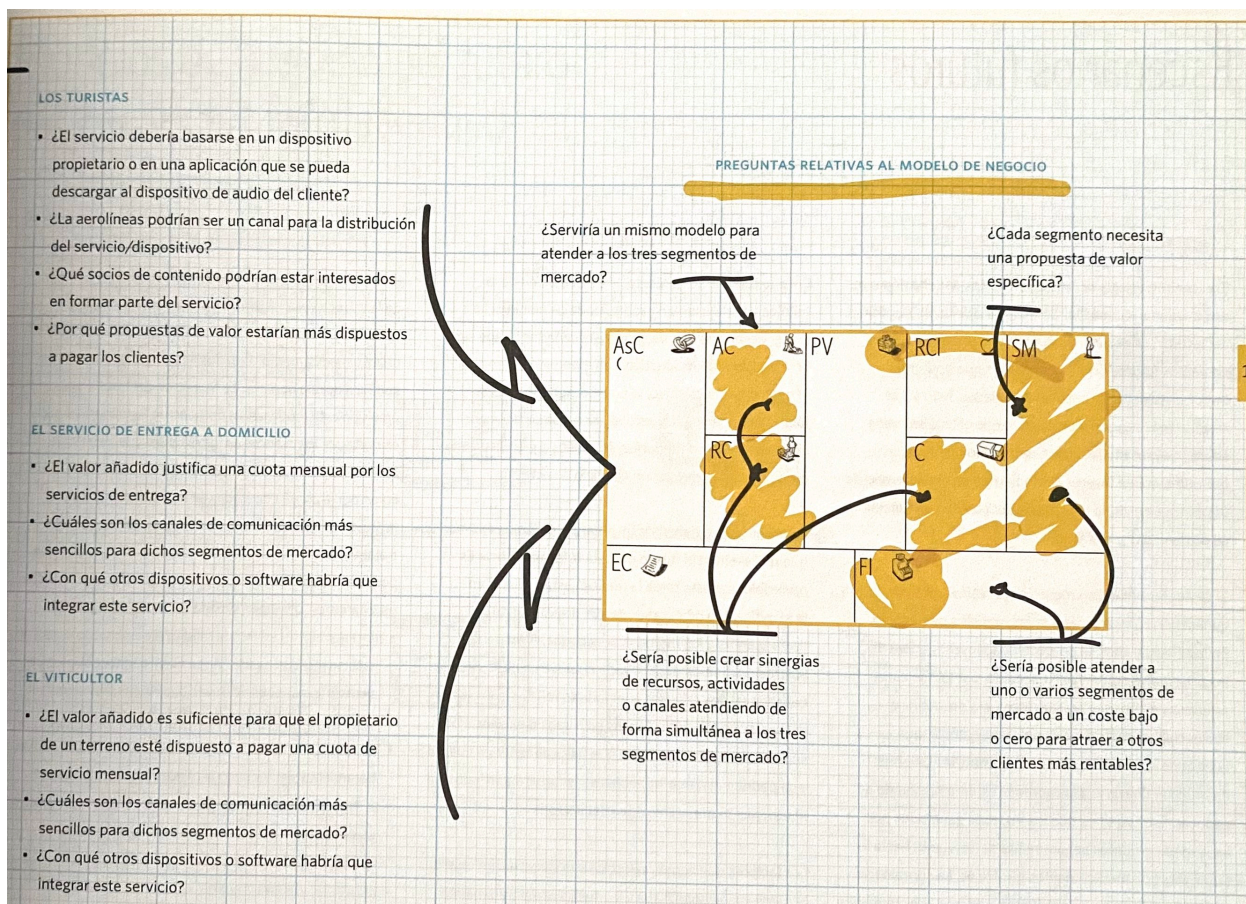 LOS TURISTAS
• ¿El servicio debería basarse en un dispositivo
propietario o en una aplicación que se pueda
descargar al dispositivo de audio del cliente?
• ¿La aerolíneas podrían ser un canal para la distribución
del servicio/dispositivo?
• ¿Qué socios de contenido podrían estar interesados
en formar parte del servicio?
• ¿Por qué propuestas de valor estarían más dispuestos
a pagar los clientes?
EL SERVICIO DE ENTREGA A DOMICILIO
• ¿El valor añadido justifica una cuota mensual por los
servicios de entrega?
• ¿Cuáles son los canales de comunicación más
sencillos para dichos segmentos de mercado?
• ¿Con qué otros dispositivos o software habría que
integrar este servicio?
EL VITICULTOR
• ¿El valor añadido es suficiente para que el propietario
de un terreno esté dispuesto a pagar una cuota de
servicio mensual?
• ¿Cuáles son los canales de comunicación más
sencillos para dichos segmentos de mercado?
• ¿Con qué otros dispositivos o software habría que
integrar este servicio?
PREGUNTAS RELATIVAS AL MODELO DE NEGOCIO
¿Serviría un mismo modelo para
atender a los tres segmentos de
mercado?
¿Cada segmento necesita
una propuesta de valor
específica?
AsC
AC
PV
RCl
SM
RC
C
EC
FI
¿Sería posible crear sinergias
de recursos, actividades
o canales atendiendo de
forma simultánea a los tres
segmentos de mercado?
¿Sería posible atender a
uno o varios segmentos de
mercado a un coste bajo
o cero para atraer a otros
clientes más rentables?